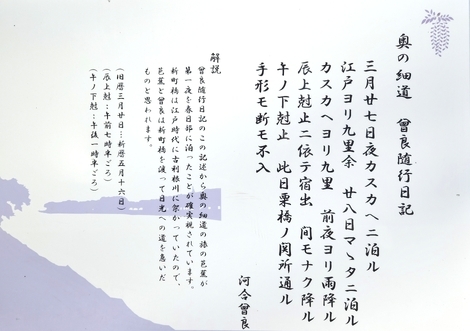 奥の細道 曾良随行日記
三月廿七日夜カスカヘニ泊ル
江戸ヨリ九里余 廿八日マゝタニ泊ル
カスカヘヨリ九里 前夜ヨリ雨降ル
辰上尅止ニ依テ宿出 間モナク降ル
午ノ下尅止 此日栗橋ノ関所通ル
手形モ断モ不入
河合曾良
解説
曾良随行日記のこの記述から奥の細道の旅の芭蕉が
第一夜を春日部に泊ったことが確実視されています。
新町橋は江戸時代に古利根川に架かっていたので、
芭蕉と曾良は新町橋を渡って日光への道を急いだ
ものと思われます。
(旧暦三月廿日…新暦五月十六日)
(辰上尅:午前七時半ごろ)
(午ノ下尅:午後一時半ごろ)